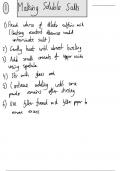 ① Making Soluble Salts
1) Heat volume of dilute sulfuric acid
(heating reactant otherwise would
contaminate salt)
2) Gently heat until almost boiling
3) Add small amounts of copper oxide
using spatula
4) Stir with glass rod
5) Continue adding until some
powder remains after stirring
6) Use filter funnel and filter paper to
remove excess